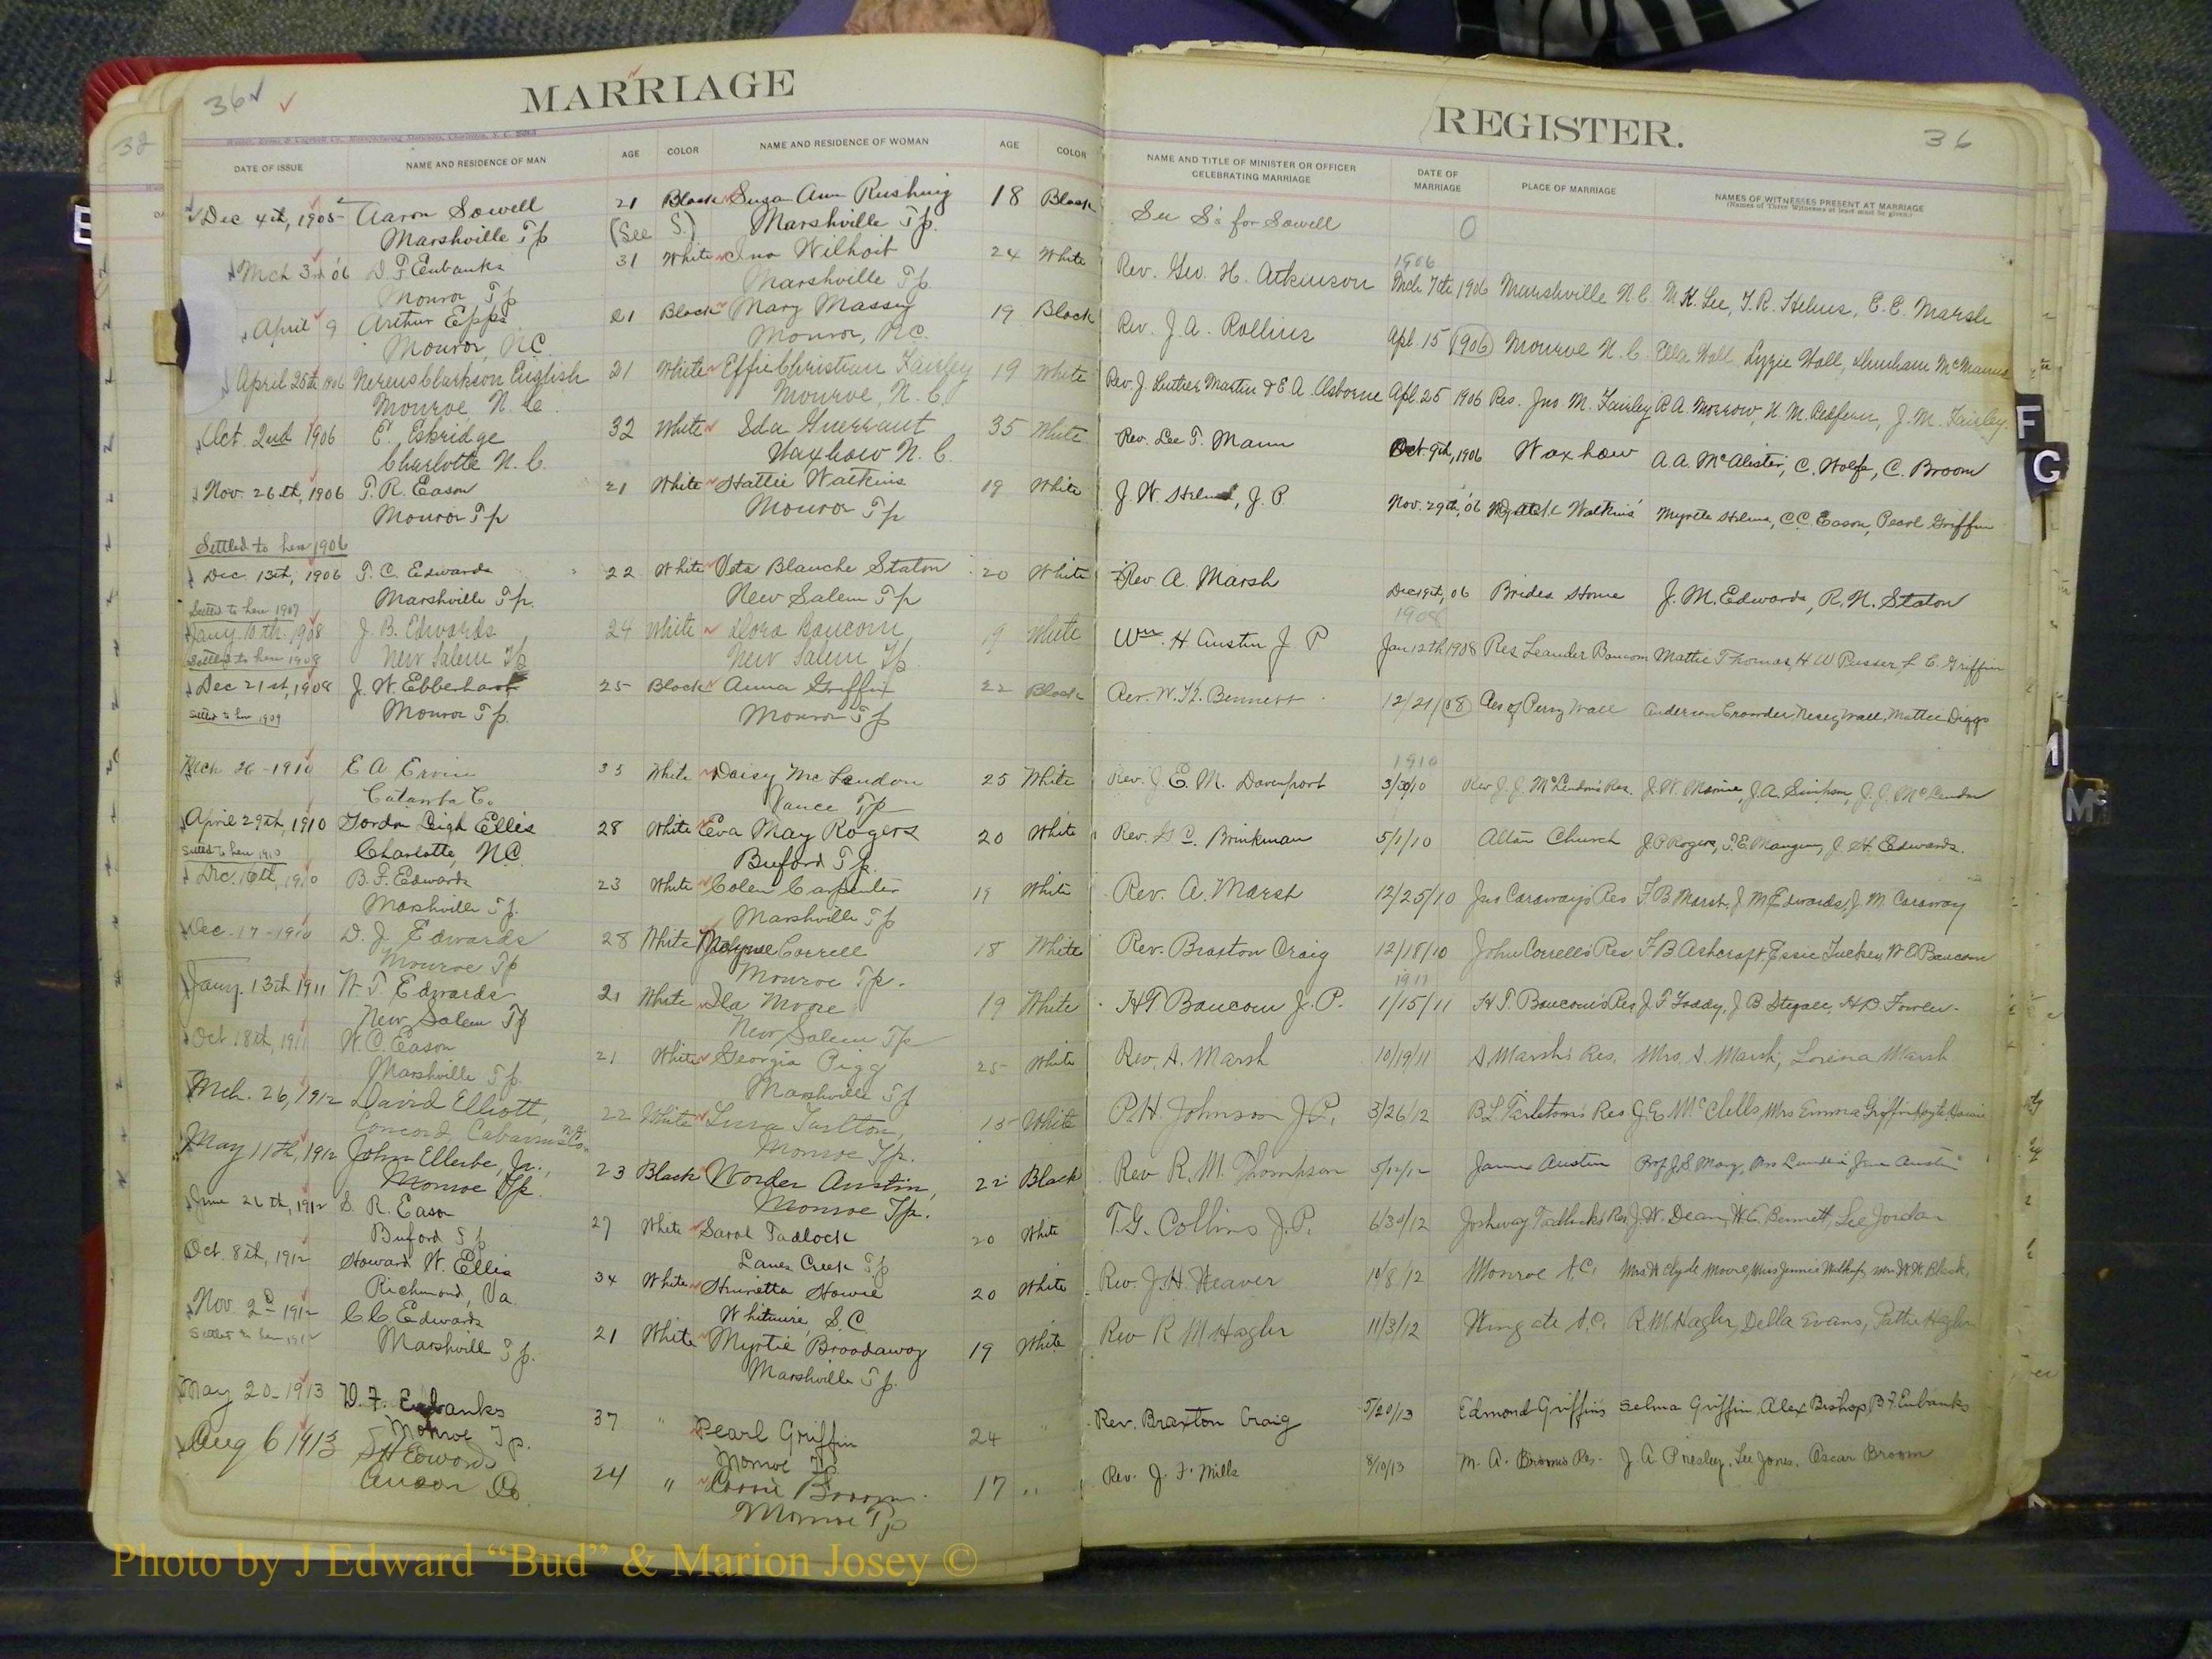 36
MARRIAGE
DATE OF ISSUE NAME AND RESIDENCE OF MAN AGE COLOR NAME AND RESIDENCE OF WOMAN AGE COLOR
Dec 4th, 1905 Aaron Sowell 21 Black Susa Ann Rushing 18 Black
Marshville Tp (See S.) Marshville Tp.
Mch 3rd 06 D. F. Eubanks 31 White Ina Wilhoit 24 White
Monroe Tp Marshville Tp.
April 9 Arthur Epps 21 Black Mary Massey 19 Black
Monroe, N.C. Monroe, N.C.
April 25th 1906 Nereus Clarkson English 21 White Effie Christian Fairley 19 White
Monroe, N.C. Monroe, N.C.
Oct. 2nd 1906 E. Eskridge 32 White Ida Guerrant 35 White
Charlotte N.C. Waxhaw N.C.
Nov. 26th, 1906 T. R. Eason 21 White Hattie Watkins 19 White
Monroe Tp Monroe Tp
Settled to here 1906
Dec. 13th, 1906 T. C. Edwards 22 White Veta Blanche Staton 20 White
Marshville Tp. New Salem Tp
Settled to here 1907
Jany. 10th 1908 J. B. Edwards 24 White Dora Baucom, 19 White
Settled to here 1908 New Salem Tp New Salem Tp.
Dec 21st, 1908 J. W. Ebberhart 25 Black Anna Griffin 22 Black
Settled to here 1909 Monroe Tp. Monroe Tp
Mch 26-1910 E A Ervin 35 White Daisy McLendon 25 White
Catawba Co. Vance Tp
April 29th, 1910 Gordon Leigh Ellis 28 White Eva May Rogers 20 White
Settled to here 1910 Charlotte, N.C. Buford Tp.
Dec. 16th, 1910 B. F. Edwards 23 White Colen Carpenter 19 White
Marshville Tp. Marshville Tp
Dec-17-1910 D. J. Edwards 28 White Correll 18 White
Monroe Tp Monroe Tp.
Jany. 13th 1911 W. T. Edwards 21 White Ila Moore 19 White
New Salem Tp New Salem Tp
Oct 18th, 1911 W. C. Eason 21 White Georgia Pigg 25 White
Marshville Tp. Marshville Tp
Mch. 26, 1912 David Elliott, 22 White Lura Tarlton, 15 White
Concord, Cabarrus Co. N.C. Monroe Tp.
May 11th, 1912 John Ellerbe, Jr., 23 Black Worder Austin, 22 Black
Monroe Tp. Monroe Tp.
June 26th, 1912 S. R. Eason 27 White Sarah Tadlock 20 White
Buford Tp Lanes Creek Tp
Oct. 8th, 1912 Howard W. Ellis 34 White Henrietta Howie 20 White
Richmond, Va. Whitmire, S.C
Nov. 2nd 1912 C C Edwards 21 White Myrtie Broadaway 19 White
Settled to here 1912 Marshvill Tp. Marshville Tp.
May 20-1913 D. F. Eubanks 37 " Pearl Griffin 24 "
Monroe Tp. Monroe Tp
Aug 6 1913 S H Edwards 24 " Carrie Broom 17 "
Anson Co. Monroe Tp
REGISTER.
36
NAME AND TITLE OF MINISTER OR OFFICER CELEBRATING MARRIAGE DATE OF MARRIAGE PLACE OF MARRIAGE NAMES OF WITNESSES PRESENT AT MARRIAGE
(Names of Three Witnesses at least must be given.)
See S's for Sowell 0
1906
Rev. Geo. H. Atkinson Mch 7th 1906 Marshville N C M. K. Lee, T. R. Helms, E. E. Marsh
Rev. J. A. Rollins Apl. 15 1906 Monroe N. C. Ella Wall Lizzie Wall, Dunham McManus
Rev. J. Luther Martin & E. A. Osborne Apl. 25 1906 Res. Jno. M. Fairley R A. Morrow, N. M. Redfearn, J. M. Fairley.
Rev. Lee T. Mann Oct 9th, 1906 Waxhaw A. A. McAlister, C. Wolfe, C. Broom
J. W. Helms, J. P. Nov. 29th, 06 Watkins' Myrtle Helms, C.C. Eason, Pearl Griffin
Rev A. Marsh Dec 19th, 06 Brides Home J. M. Edwards, R. N. Staton
1908
Wm. H Austin J P Jan 12th 1908 Res Leander Baucom Mattie Thomas, H W Pusser, L C. Griffin
Rev. W. H. Bennett 12/21/08 Res of Perry Wall Anderson Crowder, Wall, Mattie Diggs
1910
Rev. J. E. M. Davenport 3/30/10 Rev J. J. McLendon's Res. J. W. , J. A. Simpson, J. J. McLendon
Rev. Brinkman 5/1/10 Altan Church J. P Rogers, T. E. Mangum, J. H. Edwards.
Rev. A. Marsh 12/25/10 Jas Caraway's Res F. B. Marsh, J M Edwards, J. M Caraway
Rev. Braxton Craig 12/18/10 John Correll's Res F B Ashcraft, Essie Tucker, W E Baucom
1911
H T Baucom J. P. 1/15/11 H T. Baucom's Res J. T Gaddy, J B Stegall, H. D. Fowler.
Rev. A. Marsh 10/19/11 A. Marsh's Res. Mrs. A. Marsh, Lorena Marsh
P. H. Johnson J. P. 3/26/12 B. L. Tarleton's Res J. E McClellis, Mrs Emma Griffin,
Rev R. M. Thompson 5/12/12 James Austin Prof J. S Mary, Jane Austin
T. G. Collins J. P. 6/30/12 Joshway Tadlock's Res J. W. Dean, W. C. Bennett, Lee Jordan
Rev. J. H. Weaver 10/8/12 Monroe N.C. Mrs W Clyde Moore, Miss Jennie Walkup, Mrs W. H Black,
Rev R M Hagler 11/3/12 Wingate N.C. R. M. Hagler, Della Evans, Pattie Hagler
Rev. Braxton Craig 5/20/13 Edmond Griffin's Selma Griffin, Alex Bishop, B. F. Eubanks
Rev. J. F. Mills 8/10/13 M. A. Broom's Res. J. A Presley, Lee Jones, Oscar Broom
F
G
M
Mc
Photo by J Edward “Bud” & Marion Josey ©